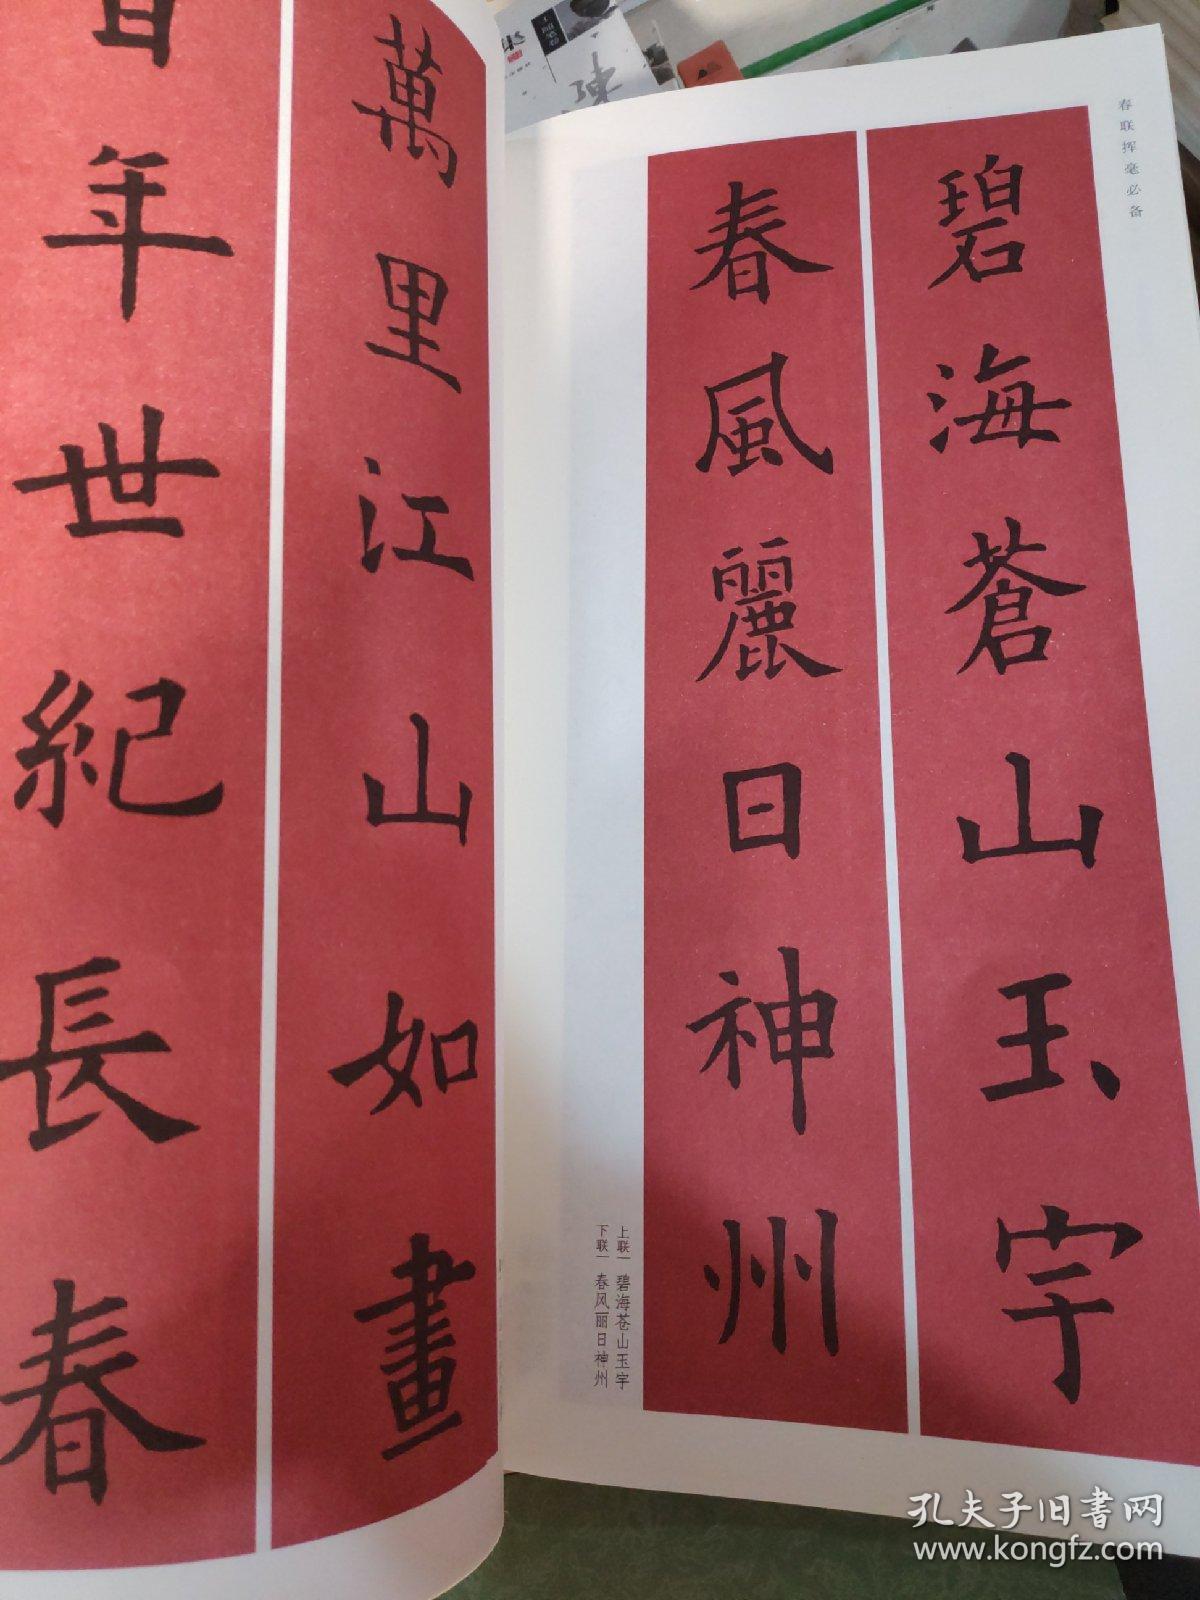 春联挥毫必备
碧海蒼山玉宇
春風麗日神州
上联—碧海苍山玉宇
下联—春风丽日神州
萬里江山如畫
年世紀長春
陳
孔夫子旧书网
www.kongfz.com